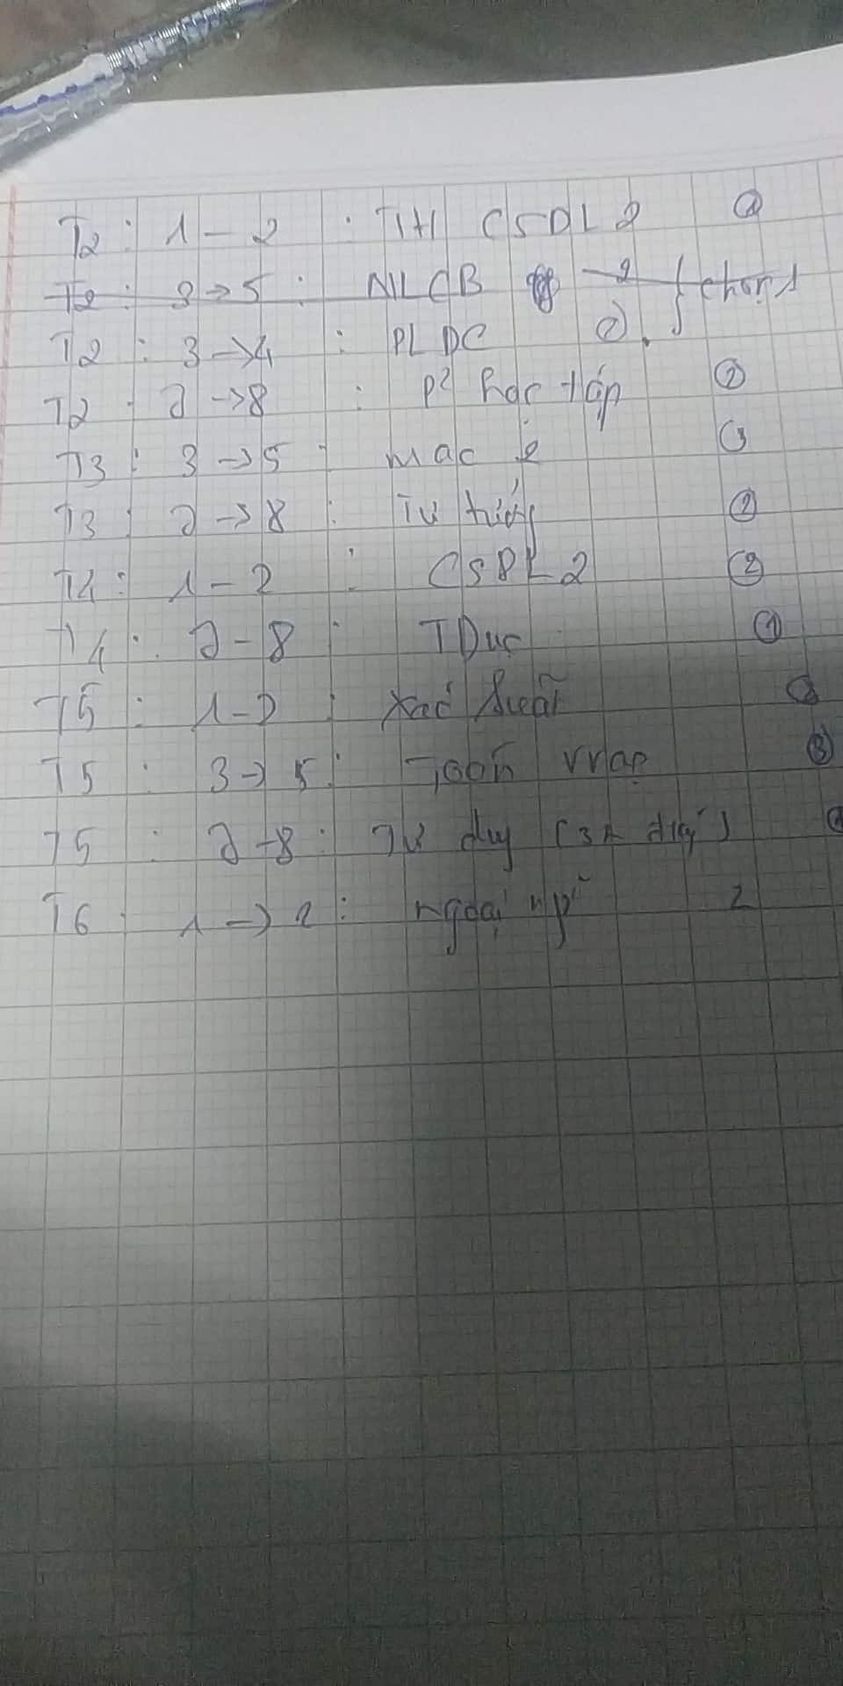 T2 : 1 - 2 : TH CSDL 2
T2 : 3 -> 5 : NLCB 2 } chọn 1
T2 : 3 -> 4 : PLDC 2
T2 : 7 -> 8 : P² học tập 2
T3 : 3 -> 5 : Mac 3
T3 : 7 -> 8 : Tư tưởng 2
T4 : 1 - 2 : CSDL 2 2
T4 : 7 - 8 : TDuc 1
T5 : 1 - 2 : Xác Suất
T5 : 3 -> 5 : Toán 3
T5 : 7 - 8 : Tư duy
T6 1 -> 2 : ngoại ngữ 2